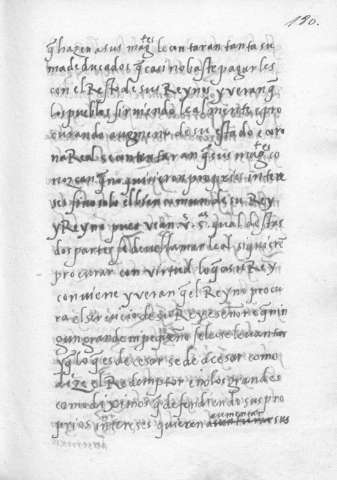 190.
q̃ hazen a sus mag.tes le contaran tanta su
ma de ducados q̃ casi no baste pagarles
con el Resto de sus Reynos y veran q̃
los pueblos sirviendo lealmente e pro
curando augmento de su estado e coro
na Real se contentaran q̃ sus mag.tes co
nozcan q̃ no quisieron proprio intere
se sino solo el bien comun de su Rey
y Reyno pues vean v. s.as qual destas
dos partes se deve llamar leal si quiere
procurar con virtud lo q̃ a su Rey
conviene y veran q̃ el Reyno procu
ra el servicio de su Rey e señor e q̃ nin
gun grande ni pequeño se le levantar
y q̃ lo q̃ es de cesar se de a cesar como
dize el Redemptor e no los grandes
como diximos q̃ defendiendo sus pro
prios intereses quieren aumentar sus